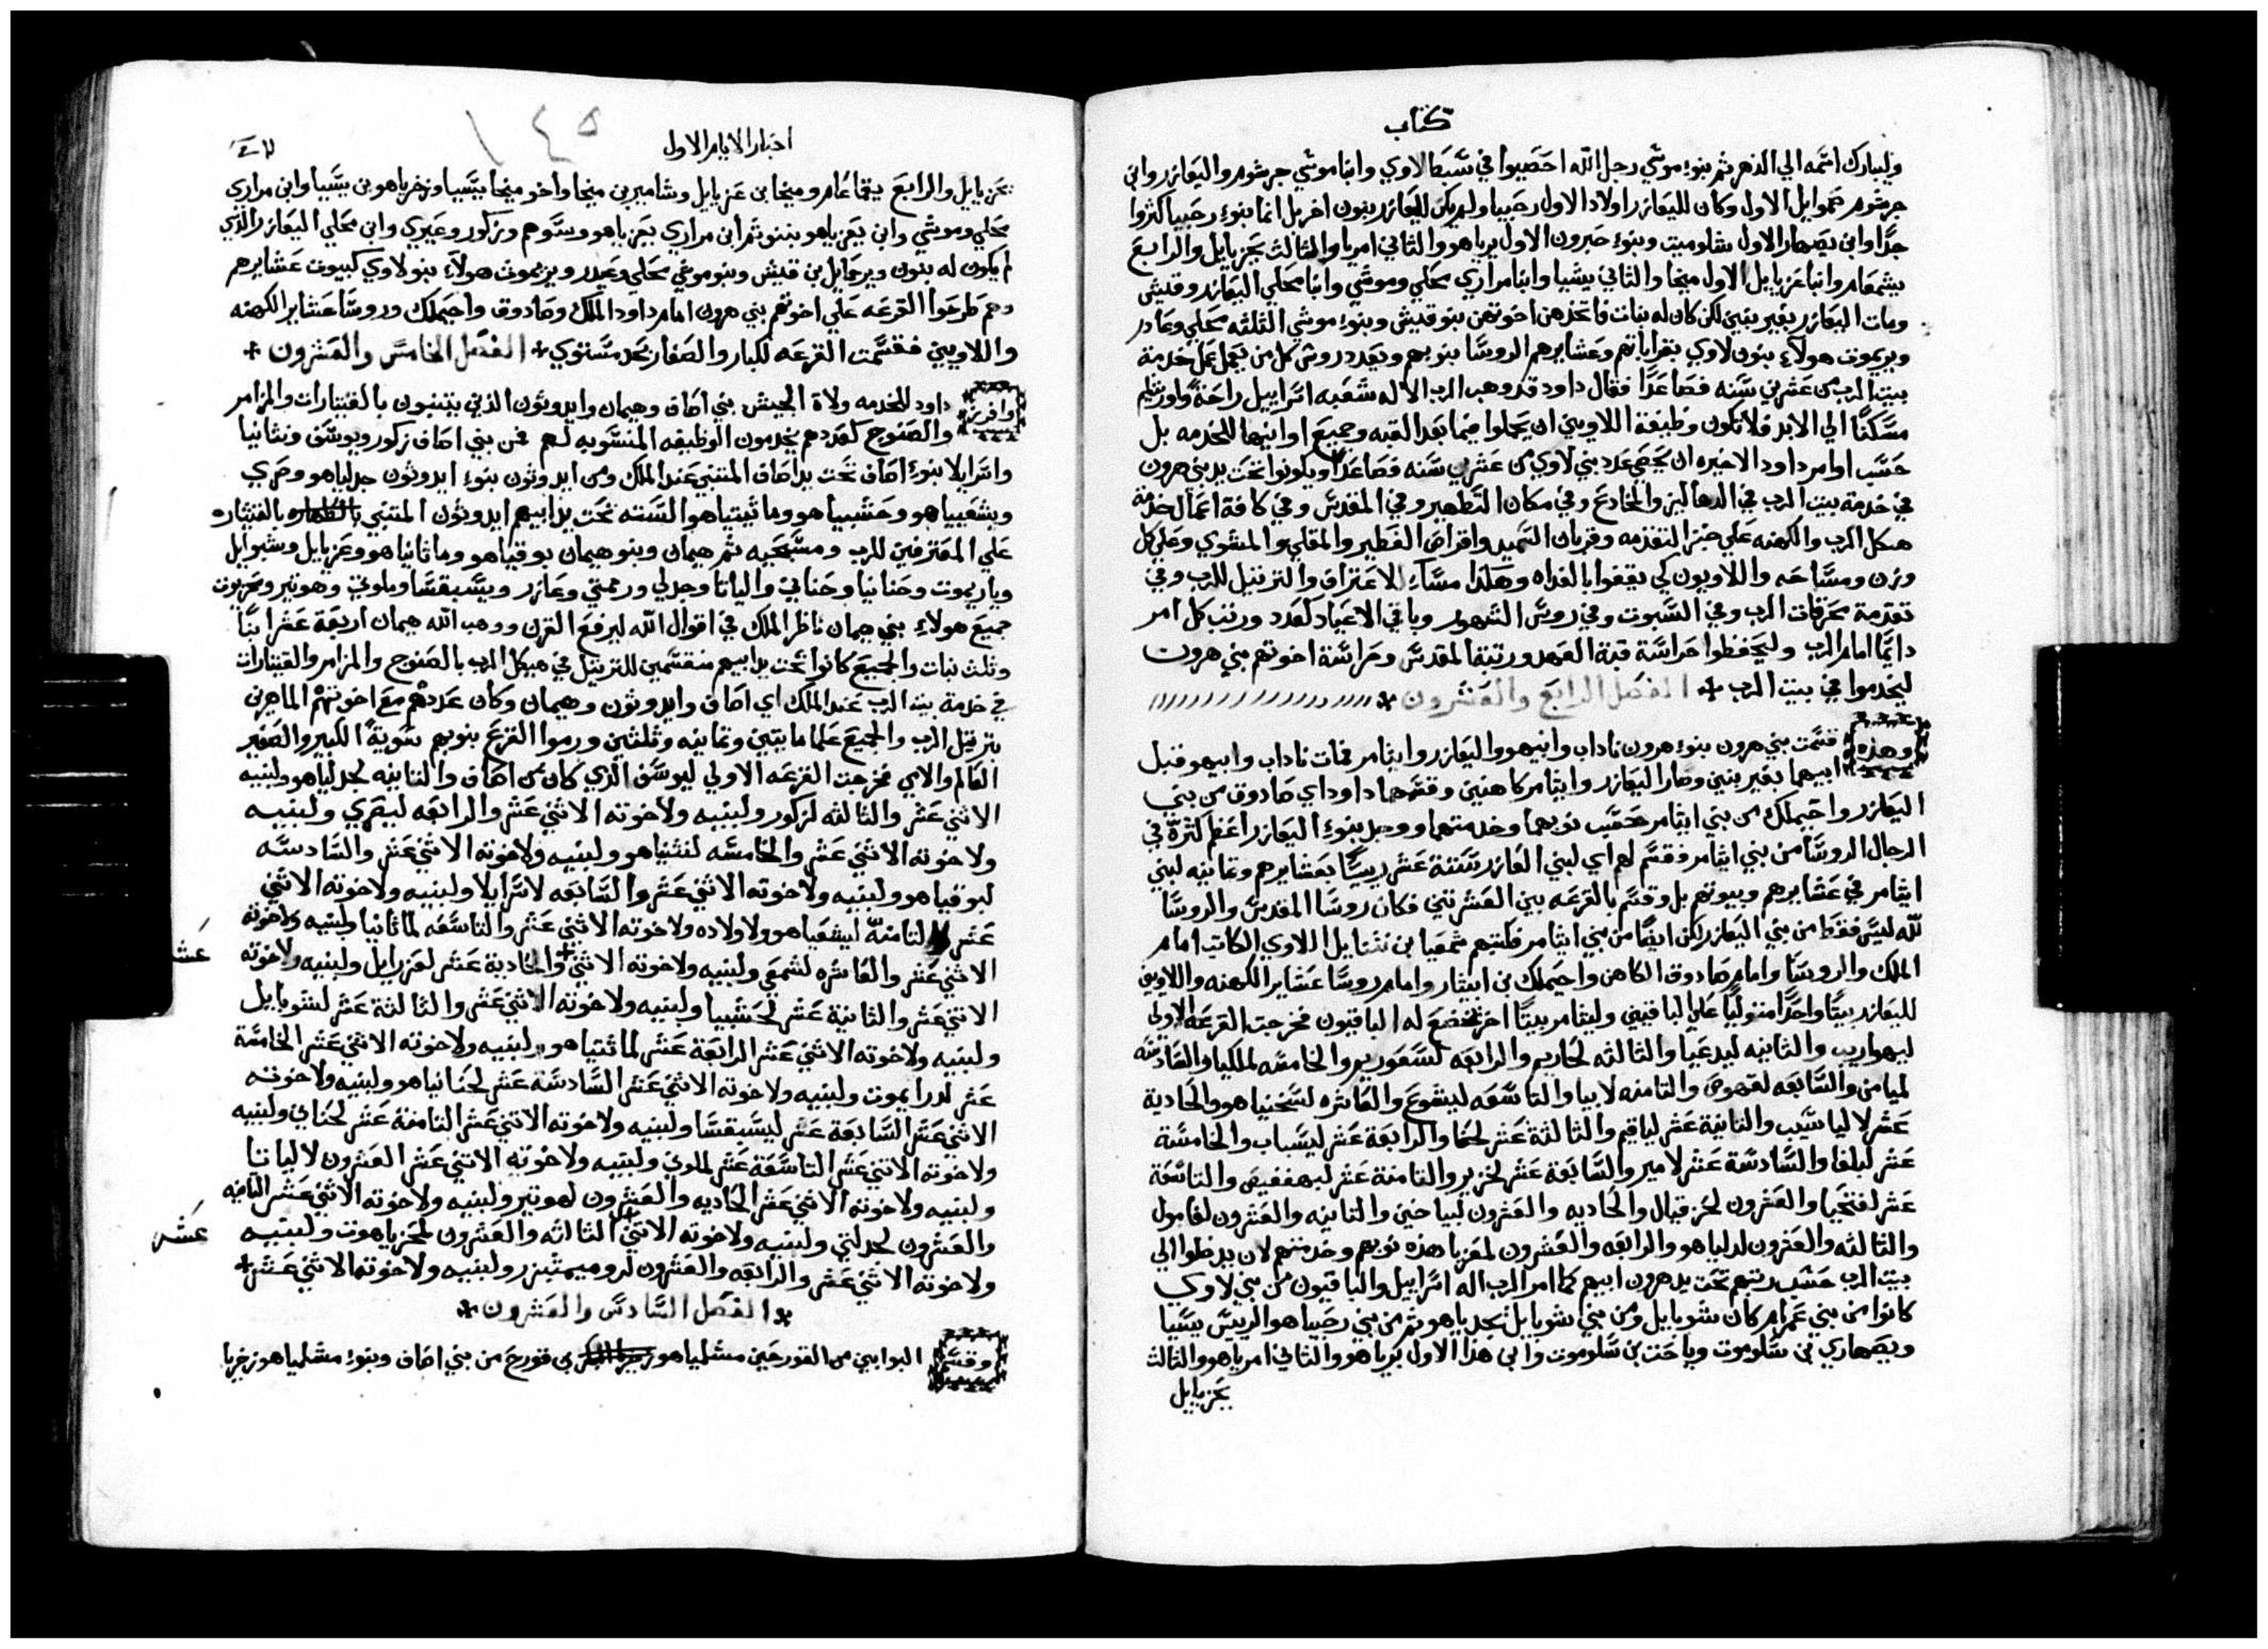 كتاب
وليبارك اسمه الي الدهر ثم بنوء موشي رجل الله احصبوا في سبط لاوي وابنا موشي جرشوم واليعازر وابن
جرشوم شموايل الاول وكان لليعازر اولاد الاول رحبيا ولم يكن لليعازر بنون اخر بل انما بنوء رحبيا كثروا
جدًا وابن يصهار الاول شلوميت وبنوء حبرون الاول يرياهو والثاني امريا والثالث يحزيايل والرابع
يشمعام وابنا عزيايل الاول ميخا والثاني يشيا وابنا مراري محلي وموشي وابنا محلي اليعازر وقيش
ومات اليعازر بغير بنين لكن كان له بنات فاتخذهن اخوتهن بنو قيش وبنوء موشي الثلثه محلي وعادر
ويريموت هولاء بنون لاوي بقراباتهم وعشايرهم الروسا بنوبهم وبعدد روس كل من يعمل عمل خدمة
بيت الرب من عشرين سنه فصاعدًا فقال داود قد وهب الرب الاله شعبه اسراييل راحةً واورشليم
مسكنًا الي الابد فلا تكون وظيفة اللاويين ان يحملوا فيما بعد القبه وجميع اوانيها للخدمه بل
حسب اوامر داود الاخيره ان يحصي عدد بني لاوي من عشرين سنه فصاعدًا ويكونوا تحت يد بني هرون
في خدمة بيت الرب في الدهاليز والمخادع وفي مكان التطهير وفي المقدس وفي كافة اعمال خدمة
هيكل الرب والكهنه علي خبز التقدمه وقربان السميد واقراص الفطير والمقلي والمشوي وعلي كل
وزن ومساحه واللاويون كي يقفوا بالغداه وهكذا مساء الاعتراف والترتيل للرب وفي
تقدمة محرقات الرب وفي السبوت وفي روس الشهور وباقي الاعياد كعدد ورتب كل امر
دايمًا امام الرب وليحفظوا حراسة قبة العهد ورتبة المقدس وحراسة اخوتهم بني هرون
ليخدموا في بيت الرب * الفصل الرابع والعشرون *
وهذه قسمت بني هرون بنوء هرون ناداب وابيهو واليعازر وايثامر فمات ناداب وابيهو قبل
ابيهما بغير بنين وصار اليعازر وايثامر كاهنين وقسمهما داود اي صادوق من بني
اليعازر واحيملك من بني ايثامر بحسب نوبهما وخدمتهما ووجد بنوء اليعازر اعظم كثرة في
الرجال الروسا من بني ايثامر وقسم لهم اي لبني العازر ستة عشر ريسًا بعشايرهم وثمانيه لبني
ايثامر في عشايرهم وبيوتهم بل وقسم بالقرعه بين العشرتين فكان روسا المقدس والروسا
لله ليس فقط من بني اليعازر لكن ايضًا من بني ايثامر فكتبهم شمعيا بن نثنايل اللاوي الكاتب امام
الملك والروسا وامام صادوق الكاهن واحيملك بن ابيثار وامام روسا عشاير الكهنه واللاويين
لليعازر بيتًا واحدًا متوليًا علي الباقيين وليثامر بيتًا اخر تخضع له الباقيون فخرجت القرعه الاولي
ليهواريب والثانيه ليدعيا والثالثه لحاريم والرابعه لسعوريم والخامسه لملكيا والسادسه
لميامن والسابعه لقهوص والثامنه لابيا والتاسعه ليشوع والعاشره لسخنياهو والحادية
عشر لالياسيب والثانية عشر لياقيم والثالثة عشر لحما والرابعة عشر ليسباب والخامسة
عشر لبلغا والسادسة عشر لامير والسابعة عشر لحزير والثامنة عشر لبهففيص والتاسعة
عشر لفتحيا والعشرون لحزقيال والحاديه والعشرون لياحين والثانيه والعشرون لغامول
والثالثه والعشرون لدلياهو والرابعه والعشرون لمعزيا هذه نوبهم وخدمتهم لان يدخلوا الي
بيت الرب حسب رتبهم تحت يد هرون ابيهم كما امر الرب اله اسراييل والباقيون من بني لاوي
كانوا من بني عمرام كان شوبايل ومن بني شوبايل يحدياهو ثم من بني رحبيا هو الريس يسيا
ويصهاري بن سلوموت وياحت بن سلوموت وابن هذا الاول يرياهو والثاني امرياهو والثالث
يحزيايل
اخبار الايام الاول
١٤٥
يحزيايل والرابع يقماعام وميخا بن عزيايل وشامير بن ميخا واخو ميخا يسيا وزخرياهو بن يسيا وابن مراري
محلي وموشي وابن يعزياهو بننو ثم ابن مراري يعزياهو وسوهم وزكور وعبري وابن محلي اليعازر الذي
لم يكون له بنون ويرحمايل بن قيش وبنو موشي محلي وعيدر ويريموت هولاء بنو لاوي كبيوت عشايرهم
وهم طرحوا القرعه علي اخوتهم بني هرون امام داود الملك وصادوق واحيملك وروسا عشاير الكهنه
واللاويين فقسمت القرعه للكبار والصغار بحد مستوي * الفصل الخامس والعشرون *
وافرز داود للخدمه ولاة الجيش بني اصاف وهيمان وايدوثون الذين يتنبون بالقيتارات والمزامر
والصنوج كعددهم يخدمون الوظيفه المنسوبه لهم فمن بني اصاف زكور ويوسف ونثانيا
واسرايلا بنوء اصاف تحت يد اصاف المتنبي عند الملك ومن ايدوثون بنوء ايدوثون جدلياهو وصري
ويشعيياهو وحشبياهو وماثيتياهو الستة تحت يد ابيهم ايدوثون المتنبي بالقيثاره
علي المعترفين للرب ومسبحيه ثم هيمان وبنو هيمان بوقياهو وماثانياهو وعزيايل وشبوايل
وياريموت وحنانيا وحناني والياثا وجدلي ورممتي وعازر ويسبقسا وملوثي وهوتير ومحزيوت
جميع هولاء بني هيمان ناظر الملك في اقوال الله ليرفع القرن ووهب الله هيمان اربعة عشر ابنًا
وثلث بنات والجميع كانوا تحت يد ابيهم منقسمين للترتيل في هيكل الرب بالصنوج والمزامر والقيتارات
في خدمة بيت الرب عند الملك اي اصاف وايدوثون وهيمان وكان عددهم مع اخوتهم الماهرين
بترتيل الرب والجميع علما مايتين وثمانيه وثلثين ورموا القرع بنوبهم سويةً الكبير والصغير
العالم والامي فخرجت القرعه الاولي ليوسف الذي كان من اصاف والثانيه لجدلياهو ولبنيه
الاثني عشر والثالثه لزكور ولبنيه ولاخوته الاثني عشر والرابعه ليصري ولبنيه
ولاخوته الاثني عشر والخامسه لنثنياهو ولبنيه ولاخوته الاثني عشر والسادسه
لبوقياهو ولبنيه ولاخوته الاثني عشر والسابعه لاسرايلا ولبنيه ولاخوته الاثني
عشر والثامنة ليشعياهو ولاولاده ولاخوته الاثني عشر والتاسعه لماثانيا ولبنيه ولاخوته
الاثني عشر والعاشره لشمعي ولبنيه ولاخوته الاثني والحادية عشر لعزرايل ولبنيه ولاخوته
عشر
الاثني عشر والثانية عشر لحشبيا ولبنيه ولاخوته الاثني عشر والثالثة عشر لشوبايل
ولبنيه ولاخوته الاثني عشر الرابعة عشر لماثتياهو ولبنيه ولاخوته الاثني عشر الخامسة
عشر لدرايموت ولبنيه ولاخوته الاثني عشر السادسة عشر لحنانياهو ولبنيه ولاخوته
الاثني عشر السابعة عشر ليسبقسا ولبنيه ولاخوته الاثني عشر الثامنة عشر لحناني ولبنيه
ولاخوته الاثني عشر التاسعة عشر لملوثي ولبنيه ولاخوته الاثني عشر العشرون لالياتا
ولبنيه ولاخوته الاثني عشر الحاديه والعشرون لهوتير ولبنيه ولاخوته الاثني عشر الثانيه
والعشرون لجدلتي ولبنيه ولاخوته الاثني الثالثه والعشرون لمحزياهوت ولبنيه
عشر
ولاخوته الاثني عشر والرابعه والعشرون لروميمثيزر ولبنيه ولاخوته الاثني عشر *
* الفصل السادس والعشرون *
وقسم البوابين من القورحين مشلمياهو بن قورح من بني اصاف وبنوء مشلمياهو زخريا